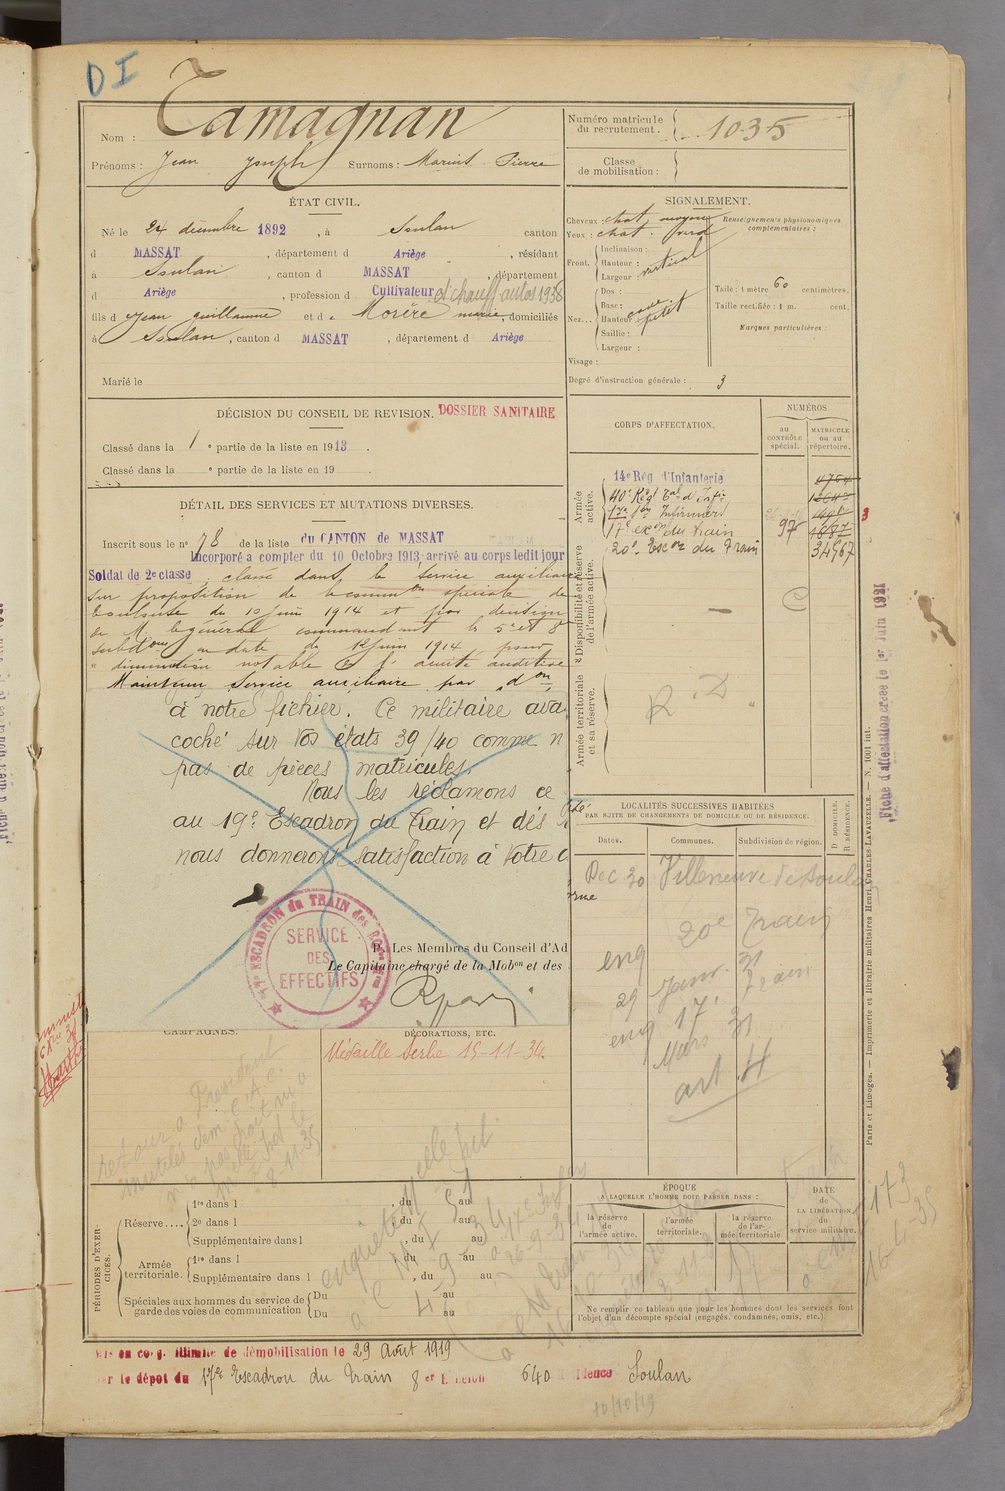 DI
Nom : Tamagnan
Prénoms : Jean Joseph Surnoms : Marius Pierre
Numéro matricule du recrutement. 1035
Classe de mobilisation :
ÉTAT CIVIL.
Né le 24 décembre 1892, à Soulan canton
d MASSAT, département d Ariège, résidant
à Soulan, canton d MASSAT, département
d Ariège, profession d Cultivateur d chauff autos 1938
fils d Jean Guillaume et d e Morère marie, domiciliés
à Soulan, canton d MASSAT, département d Ariège
Marié le
SIGNALEMENT.
Cheveux : chat moyen
Yeux : chat.
Renseignements physionomiques complémentaires :
Front. Inclinaison :
Hauteur :
Largeur : vertical
Nez... Dos :
Base :
Hauteur :
Saillie : petit
Largeur :
Visage :
Taille : 1 mètre 60 centimètres.
Taille rectifiée : 1 m. cent.
Marques particulières :
Degré d'instruction générale : 3
DÉCISION DU CONSEIL DE REVISION. DOSSIER SANITAIRE
Classé dans la 1 e partie de la liste en 1913.
Classé dans la e partie de la liste en 19 .
DÉTAIL DES SERVICES ET MUTATIONS DIVERSES.
Inscrit sous le no 78 de la liste du CANTON de MASSAT
Incorporé a compter du 10 Octobre 1913, arrivé au corps ledit jour
Soldat de 2e classe, classé dans le service auxiliaire
sur proposition de la common spéciale de
Toulouse du 10 Juin 1914 et par décision
de M. le général commandant les 5e et 8
subdons en date du 12 Juin 1914 pour
" diminution notable de l'acuité auditive
Maintenu Service auxiliaire par don
à notre fichier. Ce militaire ava
coché sur vos états 39/40 comme n
pas de pièces matricules.
Nous les réclamons ce
au 19e Escadron du Train et dès
nous donnerons satisfaction à votre
17e ESCADRON du TRAIN des
SERVICE
DES
EFFECTIFS
P. Les Membres du Conseil d'Ad
Le Capitaine chargé de la Mobon et des
CORPS D'AFFECTATION.
NUMÉROS
au CONTRÔLE spécial.
MATRICULE ou au répertoire.
Armée active.
14e Rég d'Infanterie
40e Régt Cal d'Infie
17e Son Infirmiers
17e escon du train 97
20e Escon du Train 34967
3
Disponibilité et réserve de l'armée active.
C
Armée territoriale et sa réserve.
R.D
Fiche d'affectation créée le 1er Juin 1921
LOCALITÉS SUCCESSIVES HABITÉES
PAR SUITE DE CHANGEMENTS DE DOMICILE OU DE RÉSIDENCE.
D DOMICILE.
R RÉSIDENCE.
Dates. Communes. Subdivision de région.
Dec 30 Villeneuve de
20e Train
eng
29 Janv. 31
eng 17e Train
Mars 31
art 4
Paris et Limoges. — Imprimerie et librairie militaires Henri CHARLES-LAVAUZELLE. — N. 1001 int.
CAMPAGNES.
DÉCORATIONS, ETC.
Médaille Serbe 15-11-34.
retour à President
mutilés
8-11-35
PÉRIODES D'EXERCICES.
Réserve.... 1re dans l , du au
2e dans l , du au
Supplémentaire dans l , du au
Armée territoriale. 1re dans l , du au
Supplémentaire dans l , du au
Spéciales aux hommes du service de garde des voies de communication Du au
Du au
ÉPOQUE
A LAQUELLE L'HOMME DOIT PASSER DANS :
la réserve de l'armée active.
l'armée territoriale.
la réserve de l'armée territoriale
DATE
de
LA LIBÉRATION
du
service militaire.
Ne remplir ce tableau que pour les hommes dont les services font
l'objet d'un décompte spécial (engagés, condamnés, omis, etc.).
Mis en cong. illimité de démobilisation le 29 Août 1919
par le dépôt du 17e Escadron du Train 8er Echelon 640 Résidence Soulan
10/10/19